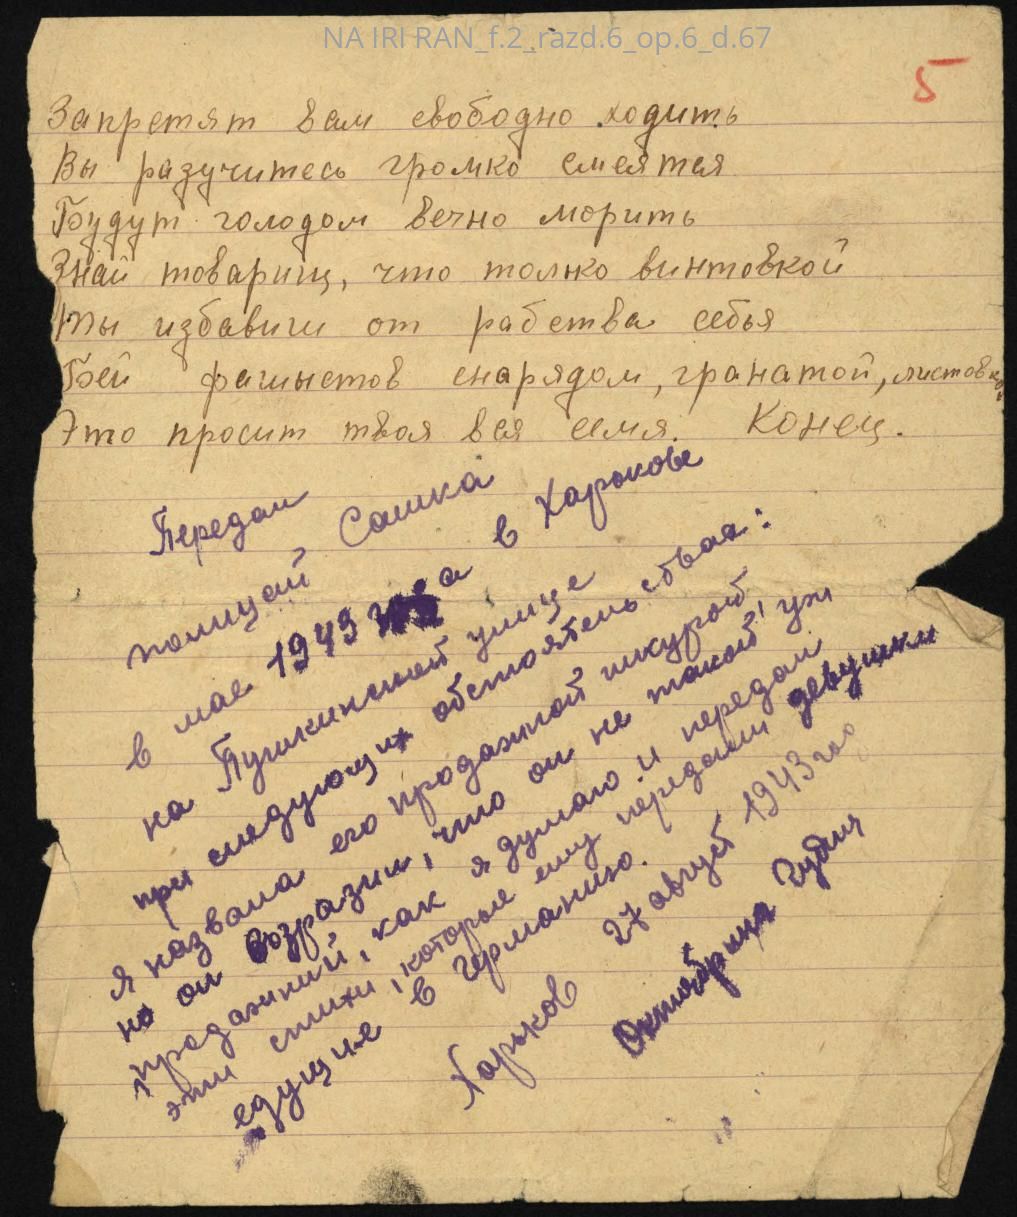 NA IRI RAN_f.2_razd.6_op.6_d.67
5
Запретят вам свободно ходить
Вы разучитесь громко смеятся
Будут голодом вечно морить
Знай товарищ, что только винтовкой
Ты избавиш от рабства себья
Бей фашыстов снарядом, гранатой, листовкой
Это просит твоя вся семя. Конец.
Передал
полицай Сашка
в мае 1943 года в Харькове
на Пушкинской улице
при следующих обстоятельствах:
я назвала его продажной шкурой
но он возразил, что он не такой уж
продажний, как я думаю и передал
эти стихи, которые ему передали девушки
едущие в Германию.
Харьков 27 август 1943го
Октябрина